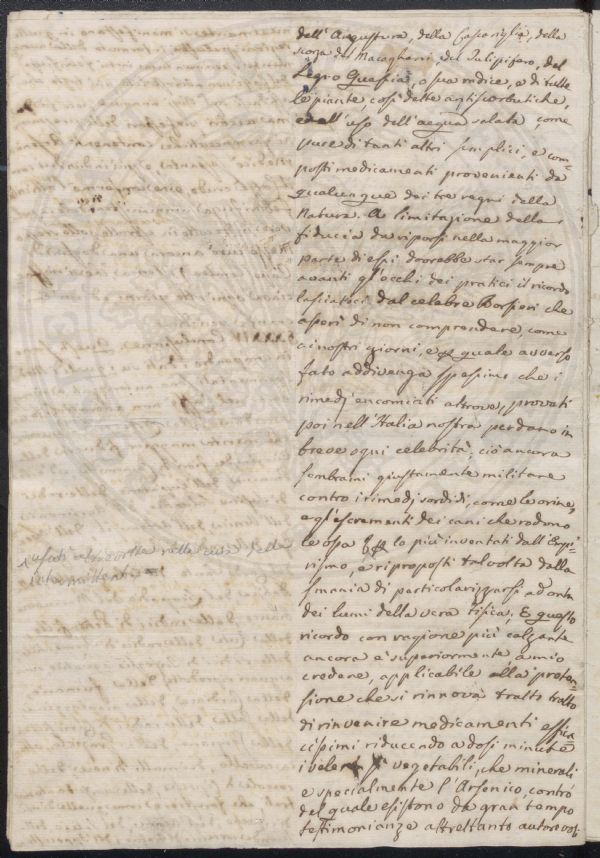 dell'Angustura, della Cascariglia, della
scorza del Macagheni del Tulipifero, del
Legno Quassia, o sua radice, e di tutte
le piante così dette antiscorbutiche,
e dell'uso dell'acqua salata, come
pure di tanti altri semplici, e com-
posti medicamenti provenienti da
qualunque dei tre regni della
Natura. A limitazione della
fiducia da riporsi nella maggior
parte di essi dovrebbe star sempre
avanti gl'occhi dei pratici il ricordo
lasciatoci dal celebre Borsieri che
asserì di non comprendere, come
ai nostri giorni, e quale avverso
fato addivenga spessissimo che i
rimedj encomiati altrove, provati
poi nell'Italia nostra perdano in
breve ogni celebrità; ciò ancora
sembrami giustamente militare
contro i rimedj sordidi, come le orine,
e gl'escrementi dei cani che rodono
le ossa lo più inventati dall'Empi-
rismo, e riproposti talvolta dalla
smania di particolarizzarsi ad onta
dei lumi della vera Fisica. E questo
ricordo con ragione più calzante
ancora è superiormente a mio
credere, applicabile alla preten-
sione che si rinnova tratto tratto
di rinvenire medicamenti effica-
cissimi riducendo a dosi minute
i veleni sì vegetabili, che minerali
e specialmente l'Arsenico, contro
del quale esistono da gran tempo
testimonianze altrettanto autorevol-
usati nella cura della
intermittenti